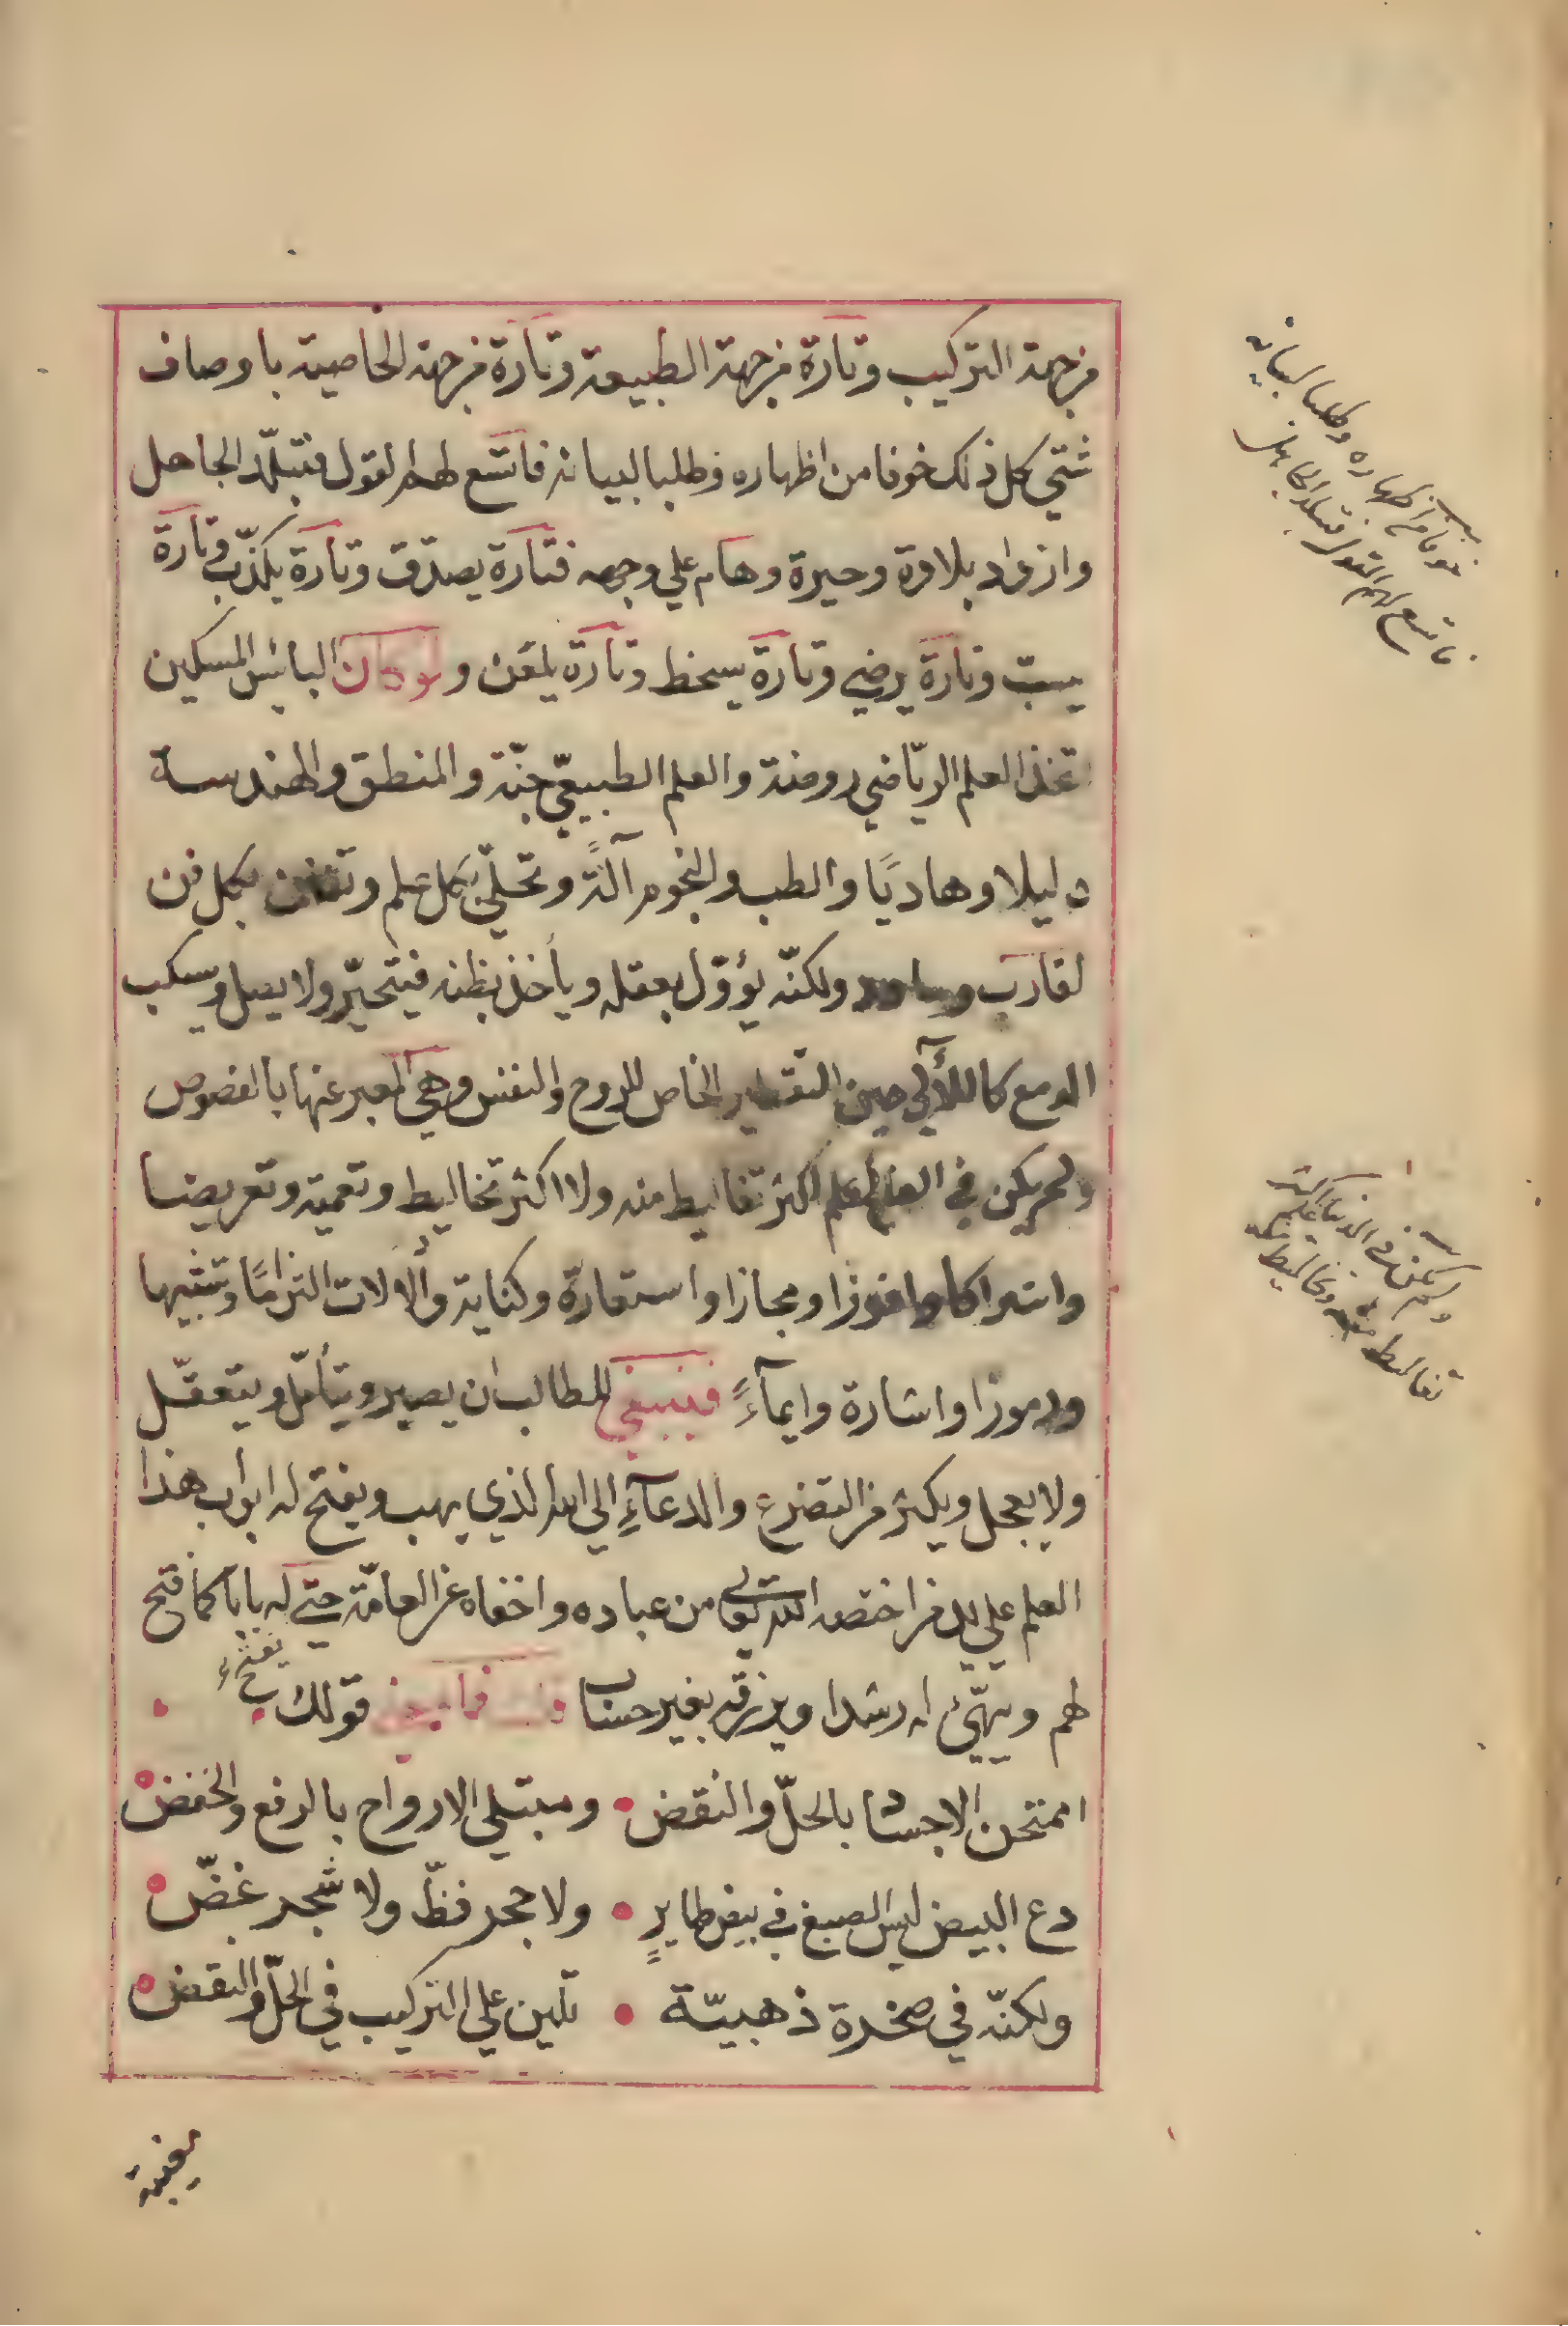 من جهة التركيب وتارة من جهة الطبيعة وتارة من جهة الخاصية باوصاف
شتي كل ذلك خوفا من اظهاره وطلبا لبيانه فاتسع لهم القول فتبلّد الجاهل
وازداد بلادة وحيرة وهام علي وجهه فتارة يصدّق وتارة يكذّب وتارة
يسبّ وتارة يرضي وتارة يسخط وتارة يلعن ولو كان البائس المسكين
اتخذ العلم الريّاضي روضة والعلم الطبيعيّ جنّة والمنطق والهندسة
دليلا وهاديًا والطب والنجوم آلةً وتحلّي بكل علم وتفنن بكل فن
لقارب ولكنّه يؤوّل بعقله ويأخذ بظنه فيتحيّر ولا يصل ويسكب
الدمع كاللآلي حين التقطير الخاص للروح والنفس وهي المعبر عنها بالفصوص
ولم يكن في العالم علم اكثر تغاليط منه ولا اكثر تخاليط وتعمية وتعريضا
واشتراكا ومجازا واستعارة وكناية ودلالات التزامًا وتشبيها
ورموزا واشارة وايمآءً فينبغي للطالب ان يصبر ويتأمّل ويتعقّل
ولا يعجل ويكثر من التضرع والدعآءِ الي الله الذي يهب ويفتح له ابواب هذا
العلم علي يد من اختصه الله تعالي من عباده واخفاه عن العامّة حتي له بابا كما فتح
يفتح
لهم ويهيّئ له رشدا ويرزقه بغير حساب قولك
اممتحن الاجساد بالحلّ والنقض ومبتلي الارواح بالرفع والخفض
دع البيض ليس الصبغ في بيض طايرٍ ولا حجر فظّ ولا شجر غضّ
ولكنّه في صخرة ذهبيّة تلين علي التركيب في الحلّ والنقض
خوفا من اظهاره وطلبا لبيانه
فاتسع لهم القول فتبلد الجاهل
ولم يكن في الدنيا علم اكثر
تغاليط منه وتخاليط منه